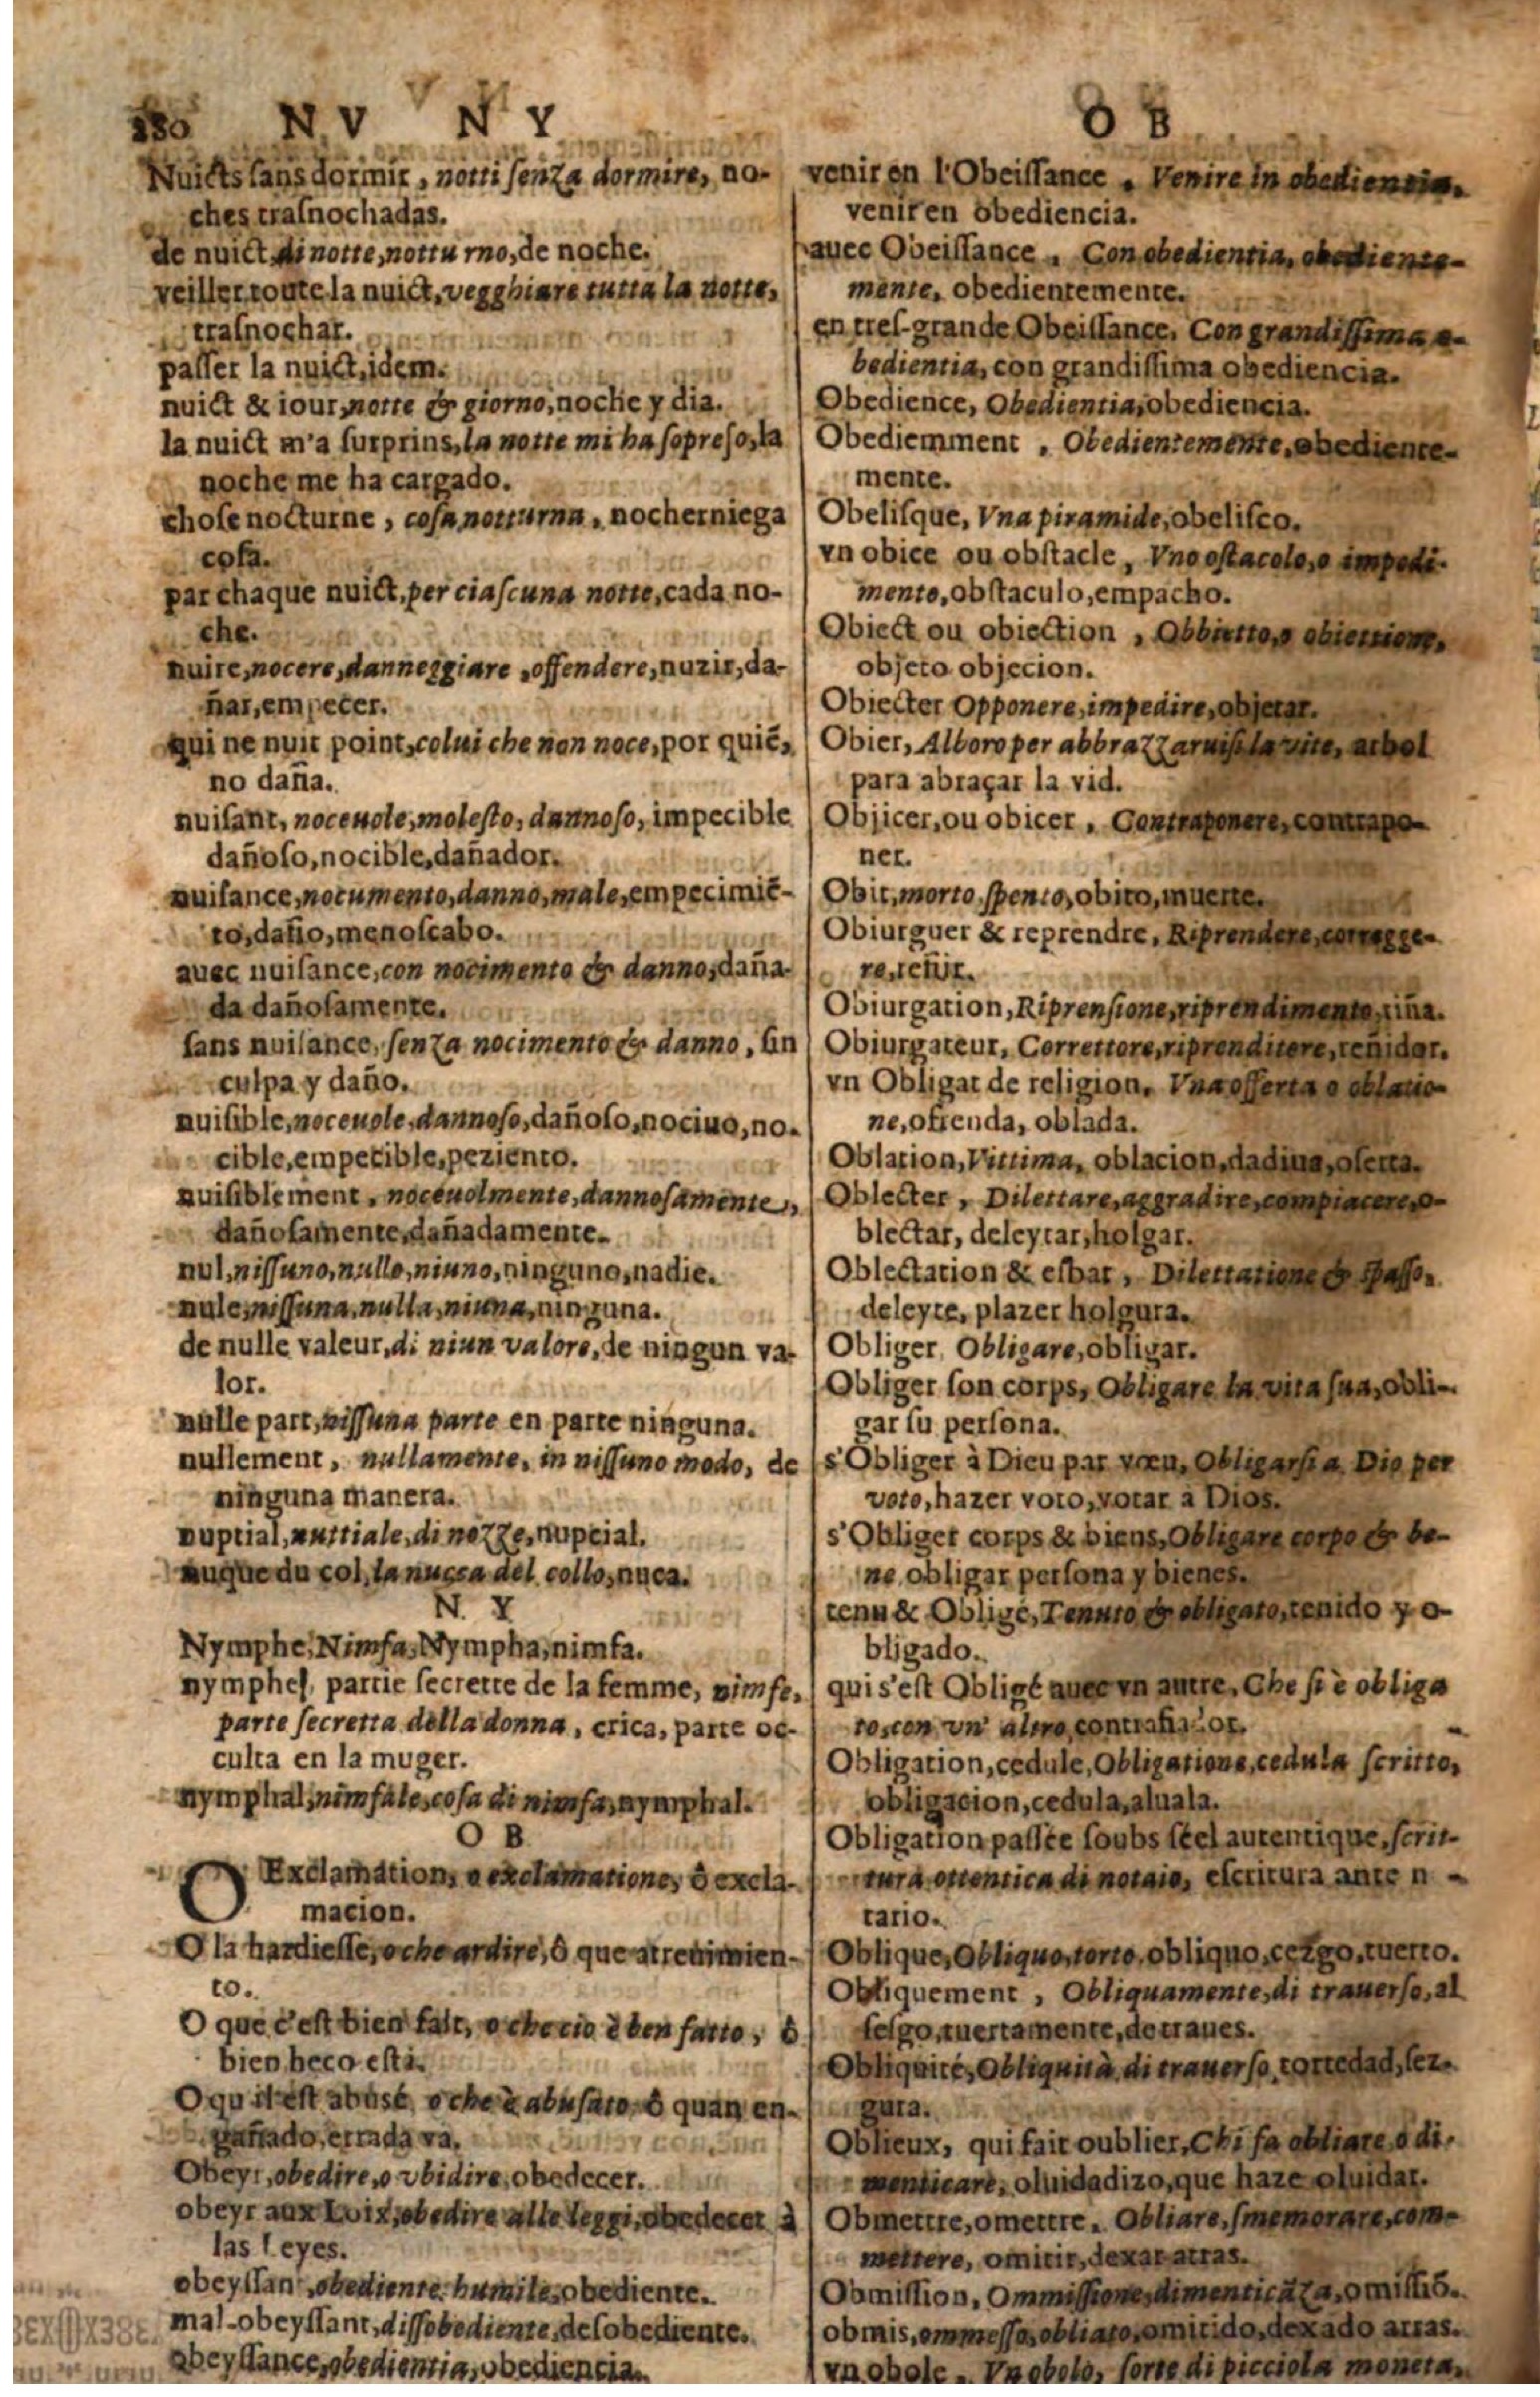 280 NV NY
Nuicts sans dormir, notti senza dormire, no-
ches trasnochadas.
de nuict, di notte, notturno, de noche.
veiller toute la nuict, vegghiare tutta la notte,
trasnochar.
passer la nuict, idem.
nuict & iour, notte & giorno, noche y dia.
la nuict m'a surprins, la notte mi ha sopreso, la
noche me ha cargado.
chose nocturne, cosa notturna, nocherniega
cosa.
par chaque nuict, per ciascuna notte, cada no-
che.
nuire, nocere, danneggiare, offendere, nuzir, da-
ñar, empecer.
qui ne nuit point, colui che non noce, por quiē,
no daña.
nuisant, noceuole, molesto, dannoso, impecible
dañoso, nocible, dañador.
nuisance, nocumento, danno, male, empecimiē-
to, daño, menoscabo.
auec nuisance, con nocimento & danno, daña-
da dañosamente.
sans nuisance, senza nocimento & danno, sin
culpa y daño.
nuisible, noceuole, dannoso, dañoso, nociuo, no-
cible, empecible, peziento.
nuisiblement, noceuolmente, dannosamente,
dañosamente, dañadamente.
nul, nissuno, nullo, niuno, ninguno, nadie.
nule, nissuna, nulla, niuna, ninguna.
de nulle valeur, di niun valore, de ningun va-
lor.
nulle part, nissuna parte en parte ninguna.
nullement, nullamente, in nissuno modo, de
ninguna manera.
nuptial, nuttiale, di nozze, nupcial.
nuque du col, la nucca del collo, nuca.
N Y
Nymphe, Nimfa, Nympha, nimfa.
nymphes, partie secrette de la femme, nimfe,
parte secretta della donna, crica, parte oc-
culta en la muger.
nymphal, nimfale, cosa di nimfa, nymphal.
O B
O Exclamation, o exclamatione, ô excla-
macion.
O la hardiesse, o che ardire, ô que atreuimien-
to.
O que c'est bien fait, o che cio è ben fatto, ô
bien heco está.
O qu'il est abusé, o che è abusato, ô quan en-
gañado, errada va.
Obeyr, obedire, o vbidire, obedecer.
obeyr aux Loix, obedire alle leggi, obedecer à
las leyes.
obeyssant, obediente humile, obediente.
mal-obeyssant, dissobediente, desobediente.
obeyssance, obedientia, obediencia.
O B
venir en l'Obeissance, Venire in obedientia,
venir en obediencia.
auec Obeissance, Con obedientia, obediente-
mente, obedientemente.
en tres-grande Obeissance, Con grandissima o-
bedientia, con grandissima obediencia.
Obedience, Obedientia, obediencia.
Obediemment, Obedientemente, obediente-
mente.
Obelisque, Vna piramide, obelisco.
vn obice ou obstacle, Vno ostacolo, o impedi-
mento, obstaculo, empacho.
Obiect ou obiection, Obbietto, o obiettione,
objeto objecion.
Obiecter Opponere, impedire, objetar.
Obier, Alboro per abbrazzaruisi la vite, arbol
para abraçar la vid.
Objicer, ou obicer, Contraponere, contrapo-
ner.
Obit, morto spento, obito, muerte.
Obiurguer & reprendre, Riprendere, corregge-
re, reñir.
Obiurgation, Riprensione, riprendimento, riña.
Obiurgateur, Correttore, riprenditore, reñidor.
vn Obligat de religion, Vna offerta o oblatio-
ne, ofrenda, oblada.
Oblation, Vittima, oblacion, dadiua, oferta.
Oblecter, Dilettare, aggradire, compiacere, o-
blectar, deleytar, holgar.
Oblectation & esbat, Dilettatione & spasso,
deleyte, plazer holgura.
Obliger, Obligare, obligar.
Obliger son corps, Obligare la vita sua, obli-
gar su persona.
s'Obliger à Dieu par vœu, Obligarsi a Dio per
voto, hazer voto, votar a Dios.
s'Obliger corps & biens, Obligare corpo & be-
ne obligar persona y bienes.
tenu & Obligé, Tenuto & obligato, tenido y o-
bligado.
qui s'est Obligé auec vn autre, Che si è obliga
to, con vn' altro, contrafiador.
Obligation, cedule, Obligatione, cedula scritto,
obligacion, cedula, aluala.
Obligation passée soubs séel autentique, scrit-
tura ottentica di notaio, escritura ante n -
tario.
Oblique, Obliquo, torto, obliquo, cezgo, tuerto.
Obliquement, Obliquamente, di trauerso, al
sesgo, tuertamente, de traues.
Obliquité, Obliquità di trauerso, tortedad, sez-
gura.
Oblieux, qui fait oublier, Chi fa obliare o di-
menticare, oluidadizo, que haze oluidar.
Obmettre, omettre, Obliare, smemorare, com-
mettere, omitir, dexar atras.
Obmission, Ommissione, dimenticāza, omissiō.
obmis, ommesso, obliato, omitido, dexado atras.
vn obole, Vn obolo, sorte di picciola moneta,